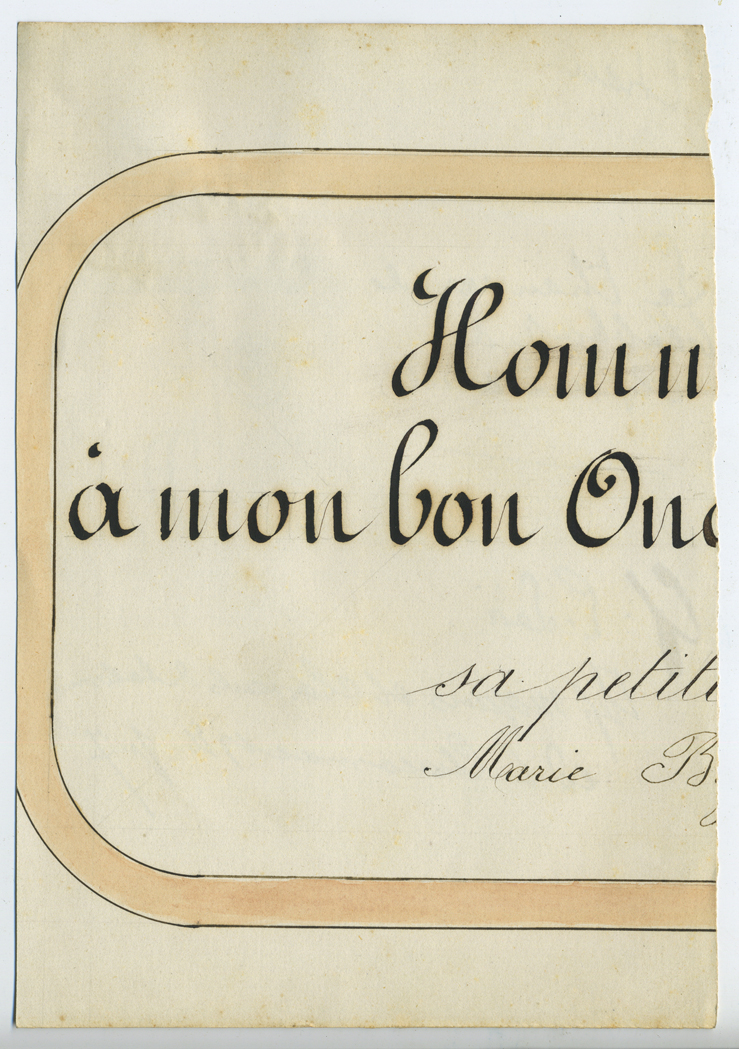 Homm
à mon bon Onc
sa petite
Marie B